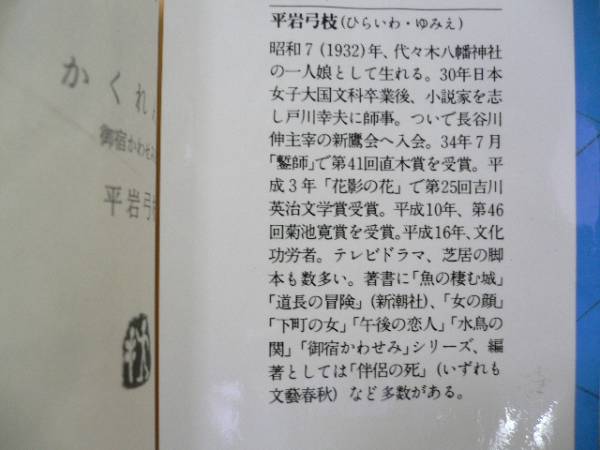 かくれ
御宿かわせみ
平岩弓
平岩弓枝(ひらいわ・ゆみえ)
昭和7(1932)年、代々木八幡神社
の一人娘として生れる。30年日本
女子大国文科卒業後、小説家を志
し戸川幸夫に師事。ついで長谷川
伸主宰の新鷹会へ入会。34年7月
「鏨師」で第41回直木賞を受賞。平
成3年「花影の花」で第25回吉川
英治文学賞受賞。平成10年、第46
回菊池寛賞を受賞。平成16年、文化
功労者。テレビドラマ、芝居の脚
本も数多い。著書に「魚の棲む城」
「道長の冒険」(新潮社)、「女の顔」
「下町の女」「午後の恋人」「水鳥の
関」「御宿かわせみ」シリーズ、編
著としては「伴侶の死」(いずれも
文藝春秋)など多数がある。